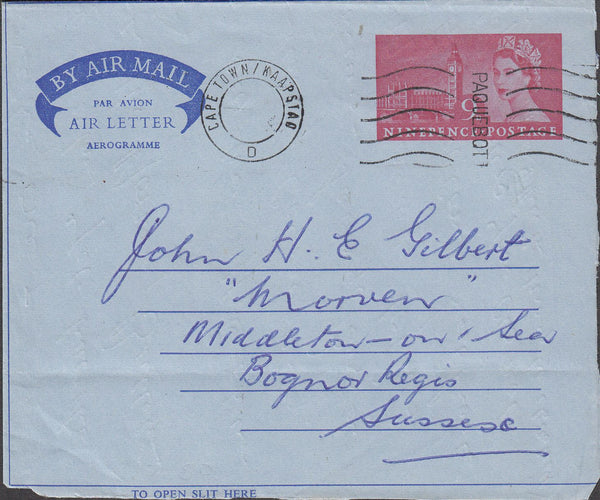 BY AIR MAIL
PAR AVION
AIR LETTER
AEROGRAMME
CAPE TOWN/KAAPSTAD
D
9
NINEPENCE POSTAGE
PAQUEBOT
John H. E Gilbert
"Morven"
Middleton-on-Sea
Bognor Regis
Sussex
TO OPEN SLIT HERE